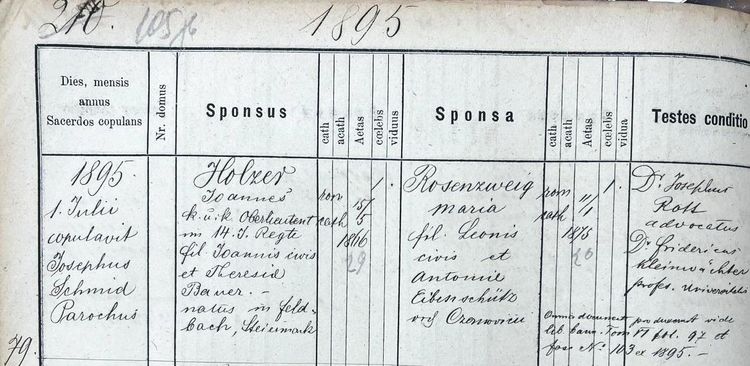 210.
105/6
1895
Dies, mensis
annus
Sacerdos copulans
Nr. domus
Sponsus
cath
acath
Aetas
cœlebs
viduus
Sponsa
cath
acath
Aetas
cœlebs
vidua
Testes conditio
79.
1895.
1. Julii
copulavit
Josephus
Schmid
Parochus
Holzer
Joannes
k. u. k Oberlieutenant
im 14. I. Regte
fil Joannis civis
et Theresia
Bauer. —
natus in Feld-
bach, Steiermark
rom
cath
15/
5
1866
29
1.
Rosenzweig
Maria
fil. Leonis
civis et
Antonie
Eibenschütz
Czernovicii
rom
cath
11/
1
1875
20
1.
Dr. Josephus
Rott
advocatus
Dr. Fridericus
Kleinwächter
profes. Universitatis
Omnia document producerunt vide
Lib. bann. Tom VI fol. 97 et
fasc No. 103 ex 1895.—